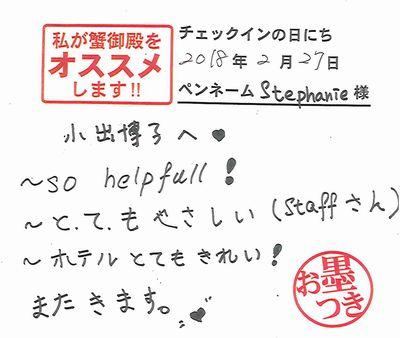 私が蟹御殿を
オススメ
します!!
チェックインの日にち
2018年2月27日
ペンネーム Stephanie 様
小出博子へ♥
~so helpfull!
~と.て.もやさしい(Staffさん)
~ホテルとてもきれい!
またきます。♥
お墨つき